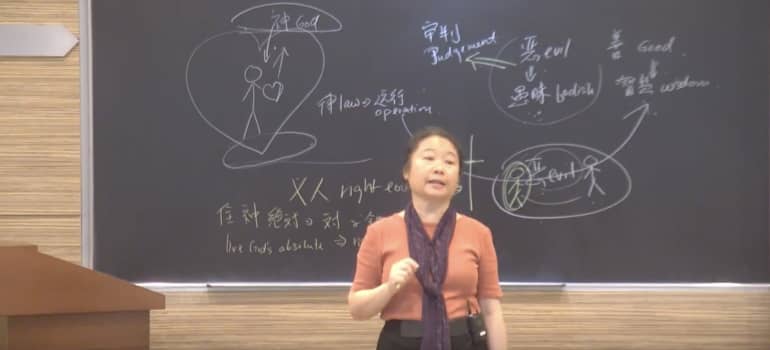 神 God
审判
Judgement
恶 evil
愚昧 foolish
善 Good
智慧 wisdom
神 law → 运行
operation
恶 evil
义人 right
住 神 绝对 → 对
live God's absolute ⇒